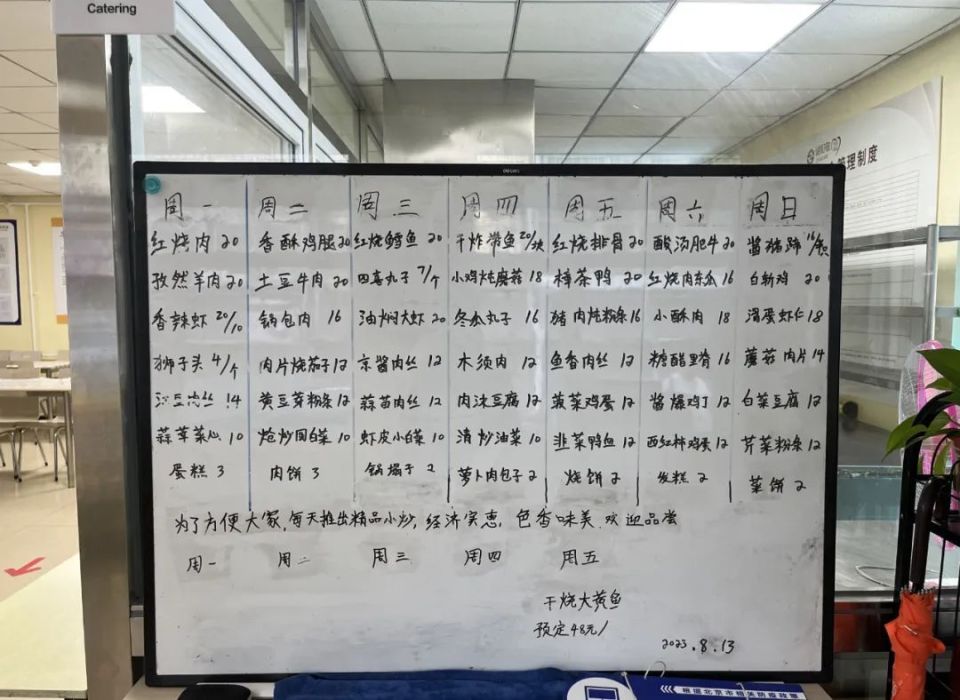 Catering
管理制度
周一 周二 周三 周四 周五 周六 周日
红烧肉 20 香酥鸡腿 20 红烧鳕鱼 20 干炸带鱼 20/块 红烧排骨 20 酸汤肥牛 20 酱猪蹄 16/
孜然羊肉 20 土豆牛肉 20 四喜丸子 7/个 小鸡炖蘑菇 18 樟茶鸭 20 红烧肉冬瓜 16 白斩鸡 20
香辣虾 20/10 锅包肉 16 油焖大虾 20 冬瓜丸子 16 猪肉炖粉条 16 小酥肉 18 滑蛋虾仁 18
狮子头 4/个 肉片烧茄子 12 京酱肉丝 12 木须肉 12 鱼香肉丝 12 糖醋里脊 16 蘑菇肉片 14
豆肉丝 14 黄豆芽粉条 12 蒜苗肉丝 12 肉沫豆腐 12 菠菜鸡蛋 12 酱爆鸡丁 12 白菜豆腐 12
蒜茸菜心 10 炝炒园白菜 10 虾皮小白菜 10 清炒油菜 10 韭菜鸭血 12 西红柿鸡蛋 12 芹菜粉条 12
蛋糕 3 肉饼 3 锅塌子 2 萝卜肉包子 2 烧饼 2 发糕 2 菜饼 2
为了方便大家,每天推出精品小炒,经济实惠,色香味美,欢迎品尝
周一 周二 周三 周四 周五
干烧大黄鱼
预定48元/
2023.8.13
根据北京市相关防疫政策